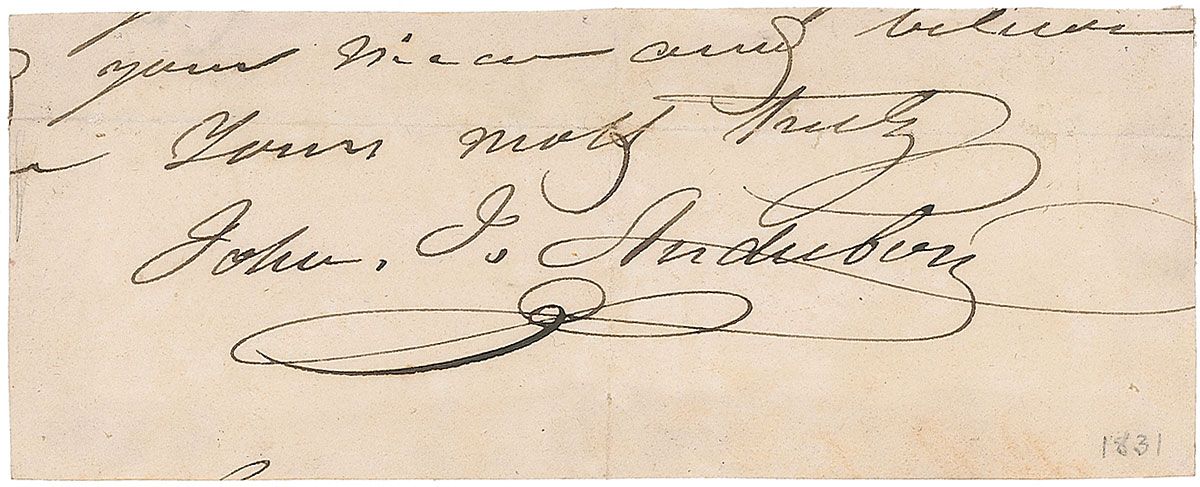 your and believe
Yours most truly
John. J. Audubon
1831